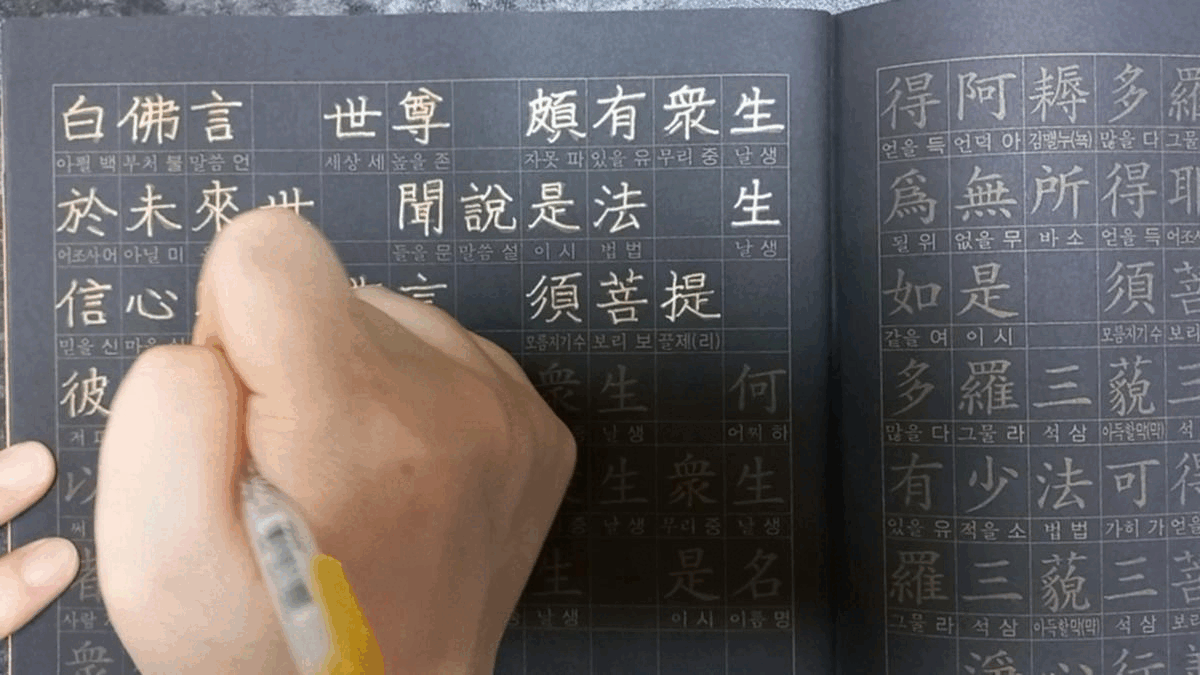 白佛言 世尊 頗有衆生
아뢸 백 부처 불 말씀 언 세상 세 높을 존 자못 파 있을 유 무리 중 날 생
於未來世 聞說是法 生
어조사 어 아닐 미 들을 문 말씀 설 이 시 법 법 날 생
信心 言 須菩提
믿을 신 마음 심 모름지기 수 보리 보 끌 제(리)
彼 衆生 何
저 피 날 생 어찌 하
以 生衆生
써 날 생 무리 중 날 생
者 生 是名
사람 날 생 이 시 이름 명
衆
得阿耨多羅
얻을 득 언덕 아 김맬 누(뇩) 많을 다 그물
爲無所得耶
될 위 없을 무 바 소 얻을 득 어조사
如是 須菩
같을 여 이 시 모름지기 수 보리
多羅三藐三
많을 다 그물 라 석 삼 아득할 막(먁) 석
有少法可得
있을 유 적을 소 법 법 가히 가 얻을
羅三藐三菩
그물 라 석 삼 아득할 막(먁) 석 삼 보리
淨心行善